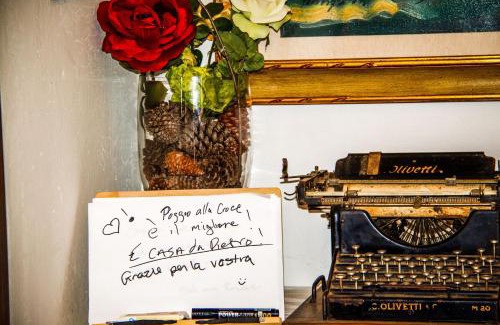 Olivetti
Poggio alla Croce
è il migliore!
È CASA da Pietro!
Grazie per la vostra
C. OLIVETTI